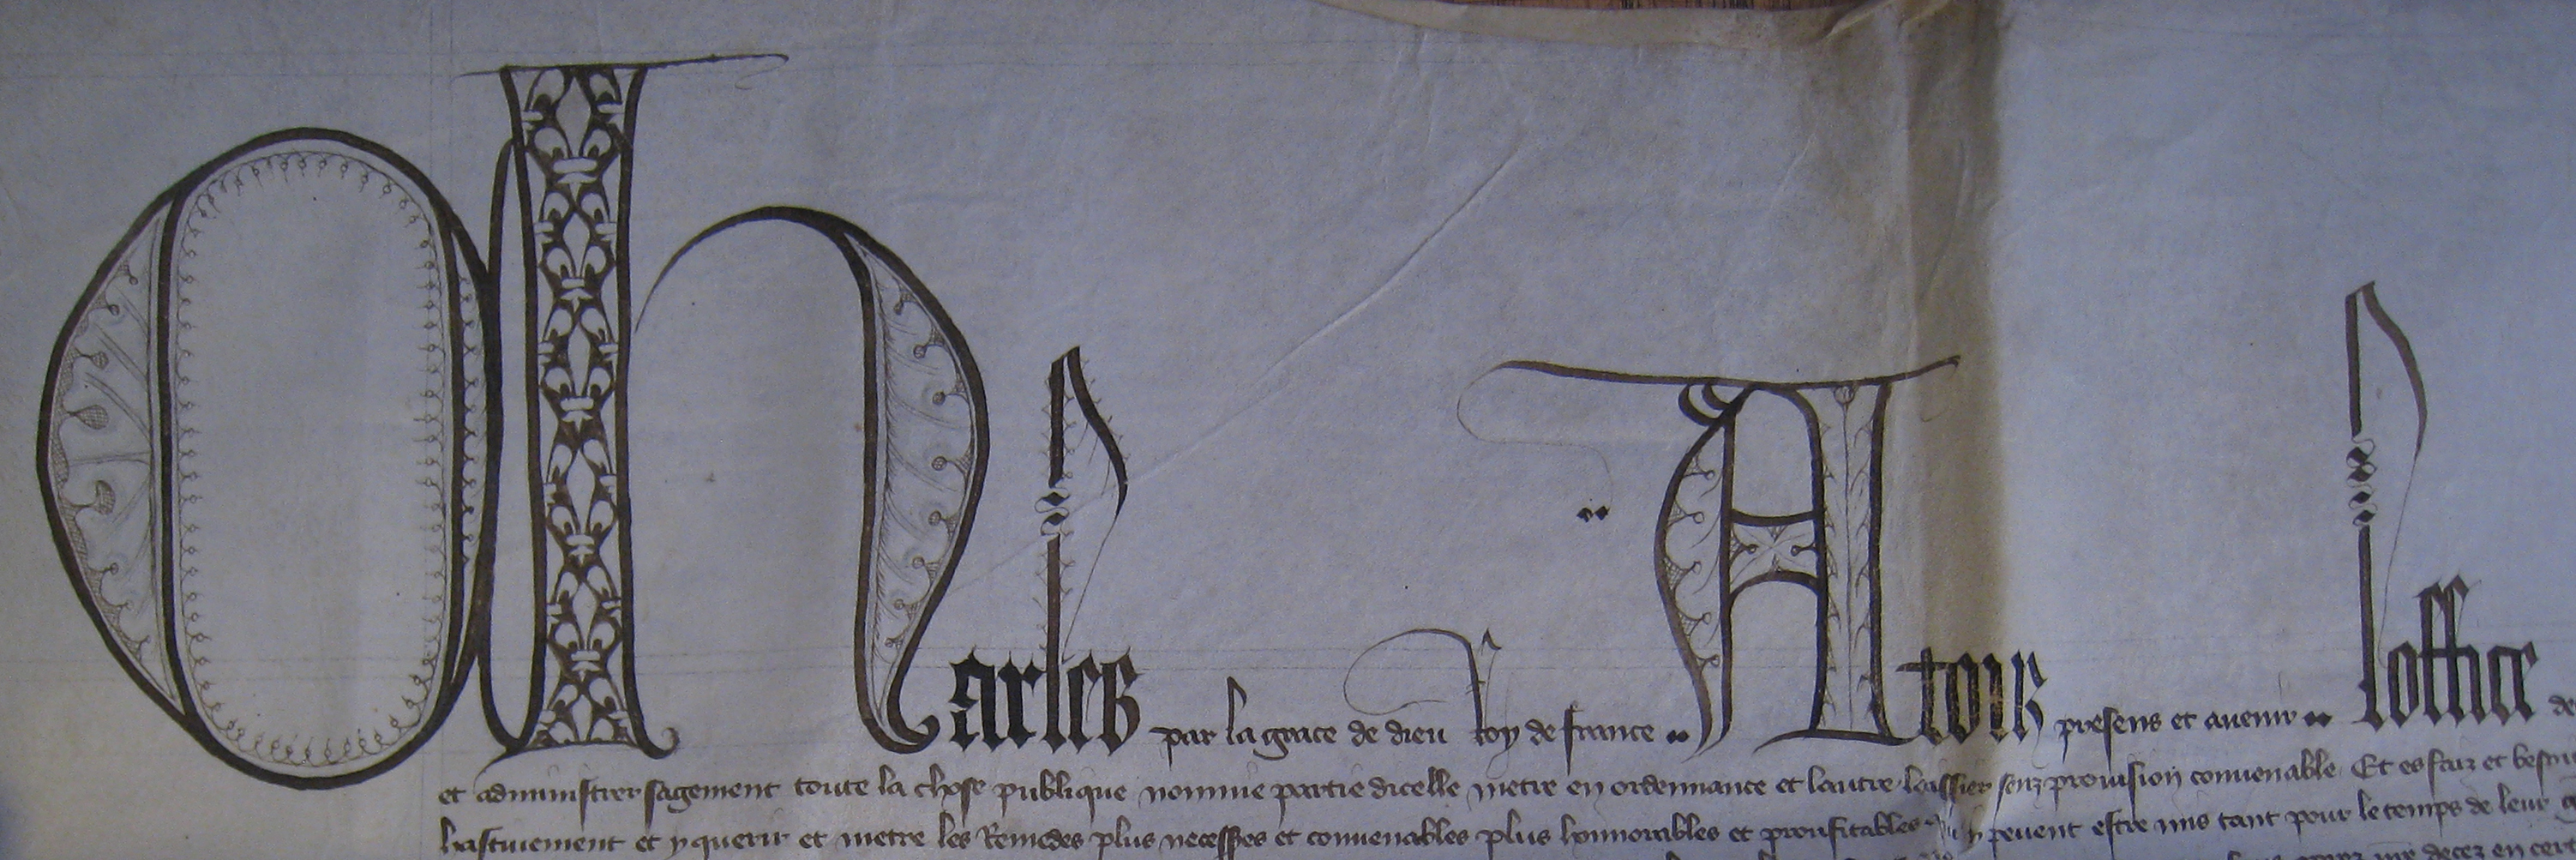 Charles par la grace de dieu Roy de france .. A tous presens et avenir .. Loffice de
et administrer sagement toute la chose publique non mie partie dicelle metre en ordennance et lautre laissier senz provision convenable Et es faiz et
hastivement et y querir et metre les Remedes plus necesses et convenables plus honnorables et proufitables peuent estre mis tant pour le temps de leur